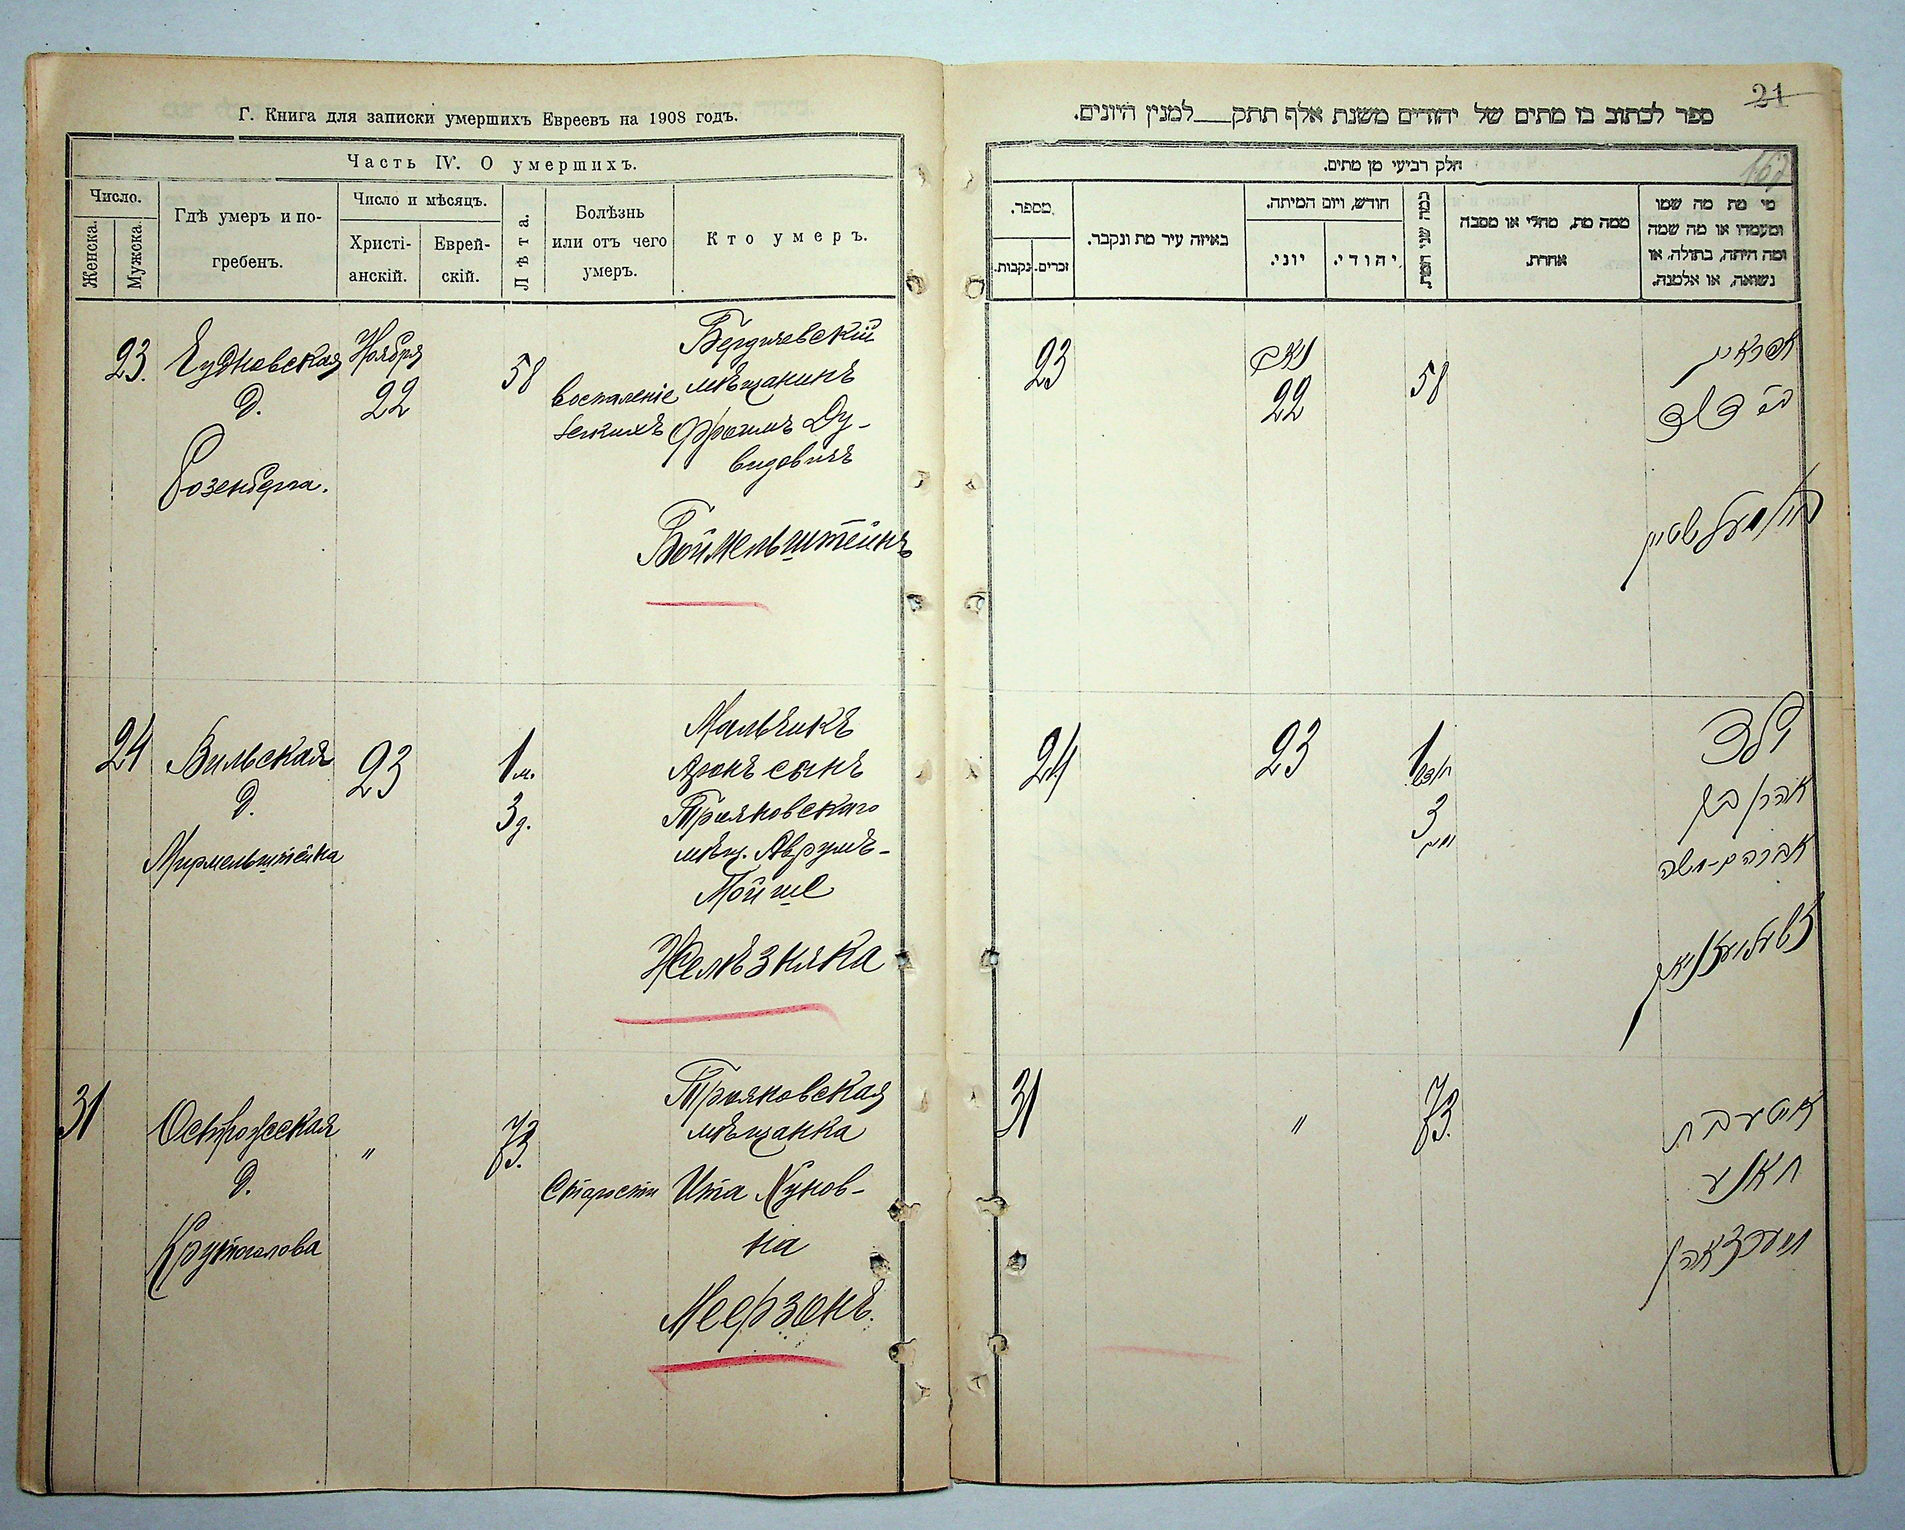 Г. Книга для записки умершихъ Евреевъ на 1908 годъ.
Часть IV. О умершихъ.
Число.
Женска.
Мужска.
Гдѣ умеръ и по-
гребенъ.
Число и мѣсяцъ.
Христі-
анскій.
Еврей-
скій.
Лѣта.
Болѣзнь
или отъ чего
умеръ.
Кто умеръ.
23.
Чудновская
д.
Розенберга.
Ноября
22
58
Воспаленіе
легкихъ
Бердичевскій
мѣщанинъ
Фроимъ Ду-
видовичъ
Боймельштейнъ
24
Вильская
д.
Мирмельштейна
23
1 м.
3 д.
Мальчикъ
Аронъ сынъ
Трояновскаго
мѣщ. Аврумъ-
Мойше
Желѣзняка
31
Острожская
д.
Крутоголова
"
73.
Старости
Трояновская
мѣщанка
Ита Хунов-
на
Меерзонъ.
21
ספר לכתוב בו מתים של יהודים משנת אלף תתק___למנין היונים.
חלק רביעי מן מתים.
מספר.
נקבות.
זכרים.
באיזה עיר מת ונקבר.
חודש, ויום המיתה.
יוני.
יהודי.
כמה שני המת.
ממה מת, מחלי או מסבה
אחרת.
מי מת מה שמו
ומעמדו או מה שמה
ומה היתה, בתולה, או
נשואה, או אלמנה.
23
22
58
אפראים
ב"ר דוד
בוימעלשטיין
24
23
1
חודש
3
ימים
ילד
אהרן בן
אברהם-משה
31
"
73.
איטע בת
חאנע
מעערזאהן